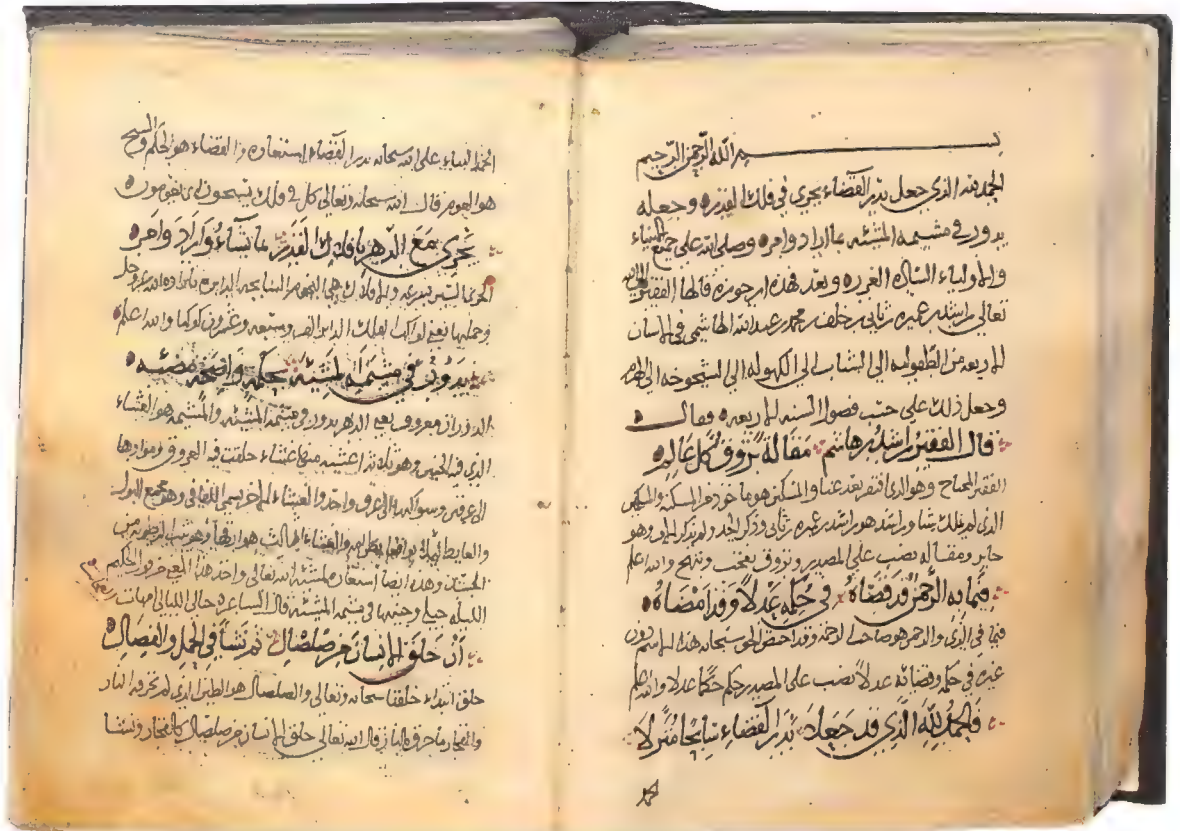 بسم الله الرحمن الرحيم
الحمد لله الذي جعل بدر القضاء يجري في فلك القدره وجعله
يدور في مشيمه المشئه بما اراد وامره وصلى الله على جميع الانبياء
والاولياء الساده الغرره وبعد فهذه ارجوزه قالها الفقير لله
تعالى راشد بن عميره بن ثاني بن خلف بن محمد بن عبدالله الهاشمي في الانسان
الاربعه من الطفوليه الى الشباب الى الكهوله الى الشيخوخه الى الهرم
وجعل ذلك على حسب فصول السنه الاربعه وقال
قال الفقير راشد بن هاشم مقالة تروق كل عالم
الفقير المحتاج وهو الذي افتقر بعد غنا والمسكين هو ماخوذ من المسكنه والمسكين
الذي لم يملك شيا وراشد هو راشد بن عميره بن ثاني وذكر الجد ولم يذكر الاب وهو
جايز ومقاله نصب على المصدر وتروق يعجب وتبهج والله اعلم
فيما به الرحمن قد قضاه في حكمه عدلا وقد امضاه
فيما في الذي والرحمن هو صاحب الرحمه وقد اختص الحق سبحانه هذا الاسم دون
غيره في حكمه وقضائه عدلا نصب على المصدر حكم حكما عدلا والله اعلم
فالحمد لله الذي قد جعلا بدر القضاء سابحا منزلا
الحمد الثناء على الله سبحانه بدر القضاء استعاره والقضاء هو الحكم والسبح
هو العوم قال الله سبحانه وتعالى كل في فلك يسبحون اي يعومون
يجري مع الدهر بافلاك القدر بما يشاء واراد وامر
الجري السير بسرعه والافلاك هي النجوم السابحه الدايره باراده الله عز وجل
وجملتها يعني كواكب الفلك الداير الف وسبعه وعشرون كوكبا والله اعلم
يدور في مشيمة المشيئه حكمه واضحة مضيئه
الدوران معروف يعني الدهر يدور في مشيمة المشئه والمشيمه هو الغشاء
الذي فيه الجنين وهو ثلاثه اغشيه منها غشاء خلقت فيه العروق ومواردها
الى عرقين وسواكنها الى عرق واحد والغشاء الاخر يسمى اللفافى وهو مجمع البول
والغشاء الثالث هو ارقها وهو يثبت الرطوبه من
الجنين وهذه ايضا استعاره لمشيئة الله تعالى واخذ هذا المعنى من قول الحكيم
الليله حبلى وجنينها في مشيمه المشيئه قال الشاعر حالى الليالي امهات
أن خلق الإنسان من صلصال ثم نشا في الحمل والفصال
خلق ابتداء خلقنا سبحانه وتعالى والصلصال هو الطين الذي لم تحرقه النار
والفخار ما حرق بالنار قال الله تعالى خلق الإنسان من صلصال كالفخار ونشا